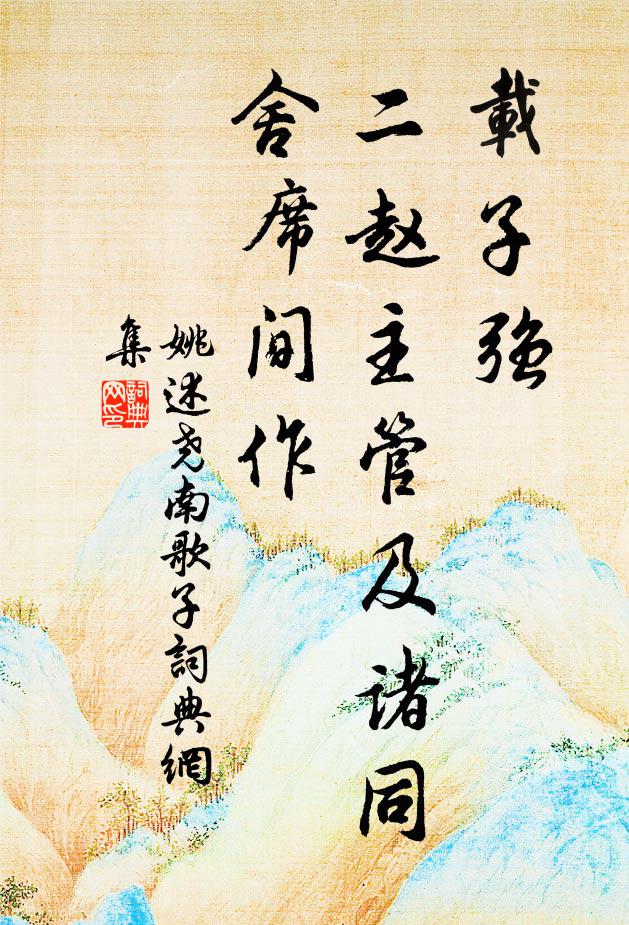 載子強
二赵主管及诸同
舍席间作
姚述尧南歌子詞典網
集
詞典網印